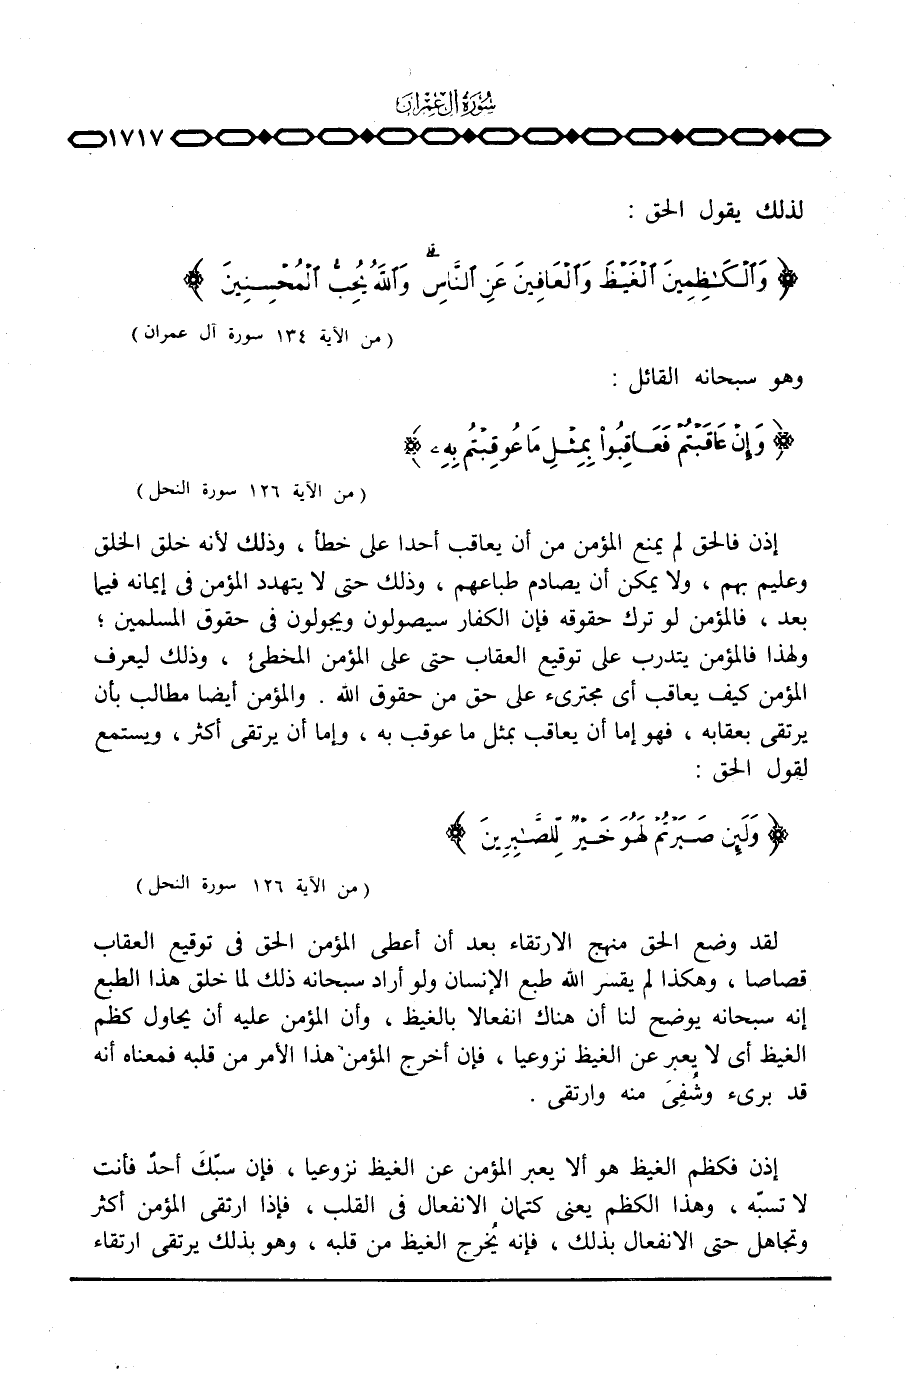 سُورَةُ آلِ عِمْرَانَ
١٧١٧
لذلك يقول الحق :
﴿ وَٱلْكَٰظِمِينَ ٱلْغَيْظَ وَٱلْعَافِينَ عَنِ ٱلنَّاسِ ۗ وَٱللَّهُ يُحِبُّ ٱلْمُحْسِنِينَ ﴾
( من الآية ١٣٤ سورة آل عمران )
وهو سبحانه القائل :
﴿ وَإِنْ عَاقَبْتُمْ فَعَاقِبُوا۟ بِمِثْلِ مَا عُوقِبْتُم بِهِۦ ﴾
( من الآية ١٢٦ سورة النحل )
إذن فالحق لم يمنع المؤمن من أن يعاقب أحدا على خطأ ، وذلك لأنه خلق الخلق
وعليم بهم ، ولا يمكن أن يصادم طباعهم ، وذلك حتى لا يتهدد المؤمن فى إيمانه فيما
بعد ، فالمؤمن لو ترك حقوقه فإن الكفار سيصولون ويجولون فى حقوق المسلمين ؛
ولهذا فالمؤمن يتدرب على توقيع العقاب حتى على المؤمن المخطئ ، وذلك ليعرف
المؤمن كيف يعاقب أى مجترىء على حق من حقوق الله . والمؤمن أيضا مطالب بأن
يرتقى بعقابه ، فهو إما أن يعاقب بمثل ما عوقب به ، وإما أن يرتقى أكثر ، ويستمع
لقول الحق :
﴿ وَلَئِن صَبَرْتُمْ لَهُوَ خَيْرٌ لِّلصَّٰبِرِينَ ﴾
( من الآية ١٢٦ سورة النحل )
لقد وضع الحق منهج الارتقاء بعد أن أعطى المؤمن الحق فى توقيع العقاب
قصاصا ، وهكذا لم يقسر الله طبع الإنسان ولو أراد سبحانه ذلك لما خلق هذا الطبع
إنه سبحانه يوضح لنا أن هناك انفعالا بالغيظ ، وأن المؤمن عليه أن يحاول كظم
الغيظ أى لا يعبر عن الغيظ نزوعيا ، فإن أخرج المؤمن هذا الأمر من قلبه فمعناه أنه
قد برىء وشُفِىَ منه وارتقى .
إذن فكظم الغيظ هو ألا يعبر المؤمن عن الغيظ نزوعيا ، فإن سبّكَ أحدٌ فأنت
لا تسبّه ، وهذا الكظم يعنى كتمان الانفعال فى القلب ، فإذا ارتقى المؤمن أكثر
وتجاهل حتى الانفعال بذلك ، فإنه يُخرج الغيظ من قلبه ، وهو بذلك يرتقى ارتقاء